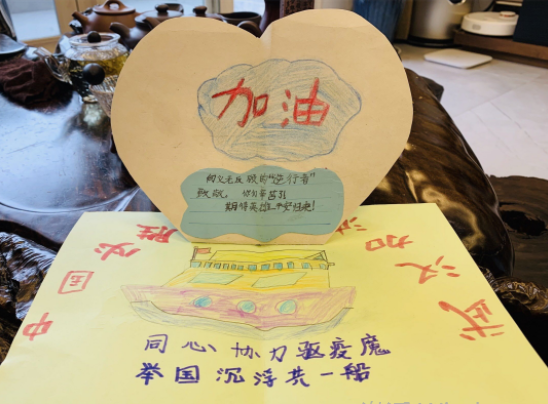 加油
向义无反顾的“逆行者”
致敬。你们辛苦了
期待英雄平安归来!
中国必胜
武汉加油
同心协力驱疫魔
举国沉浮共一船